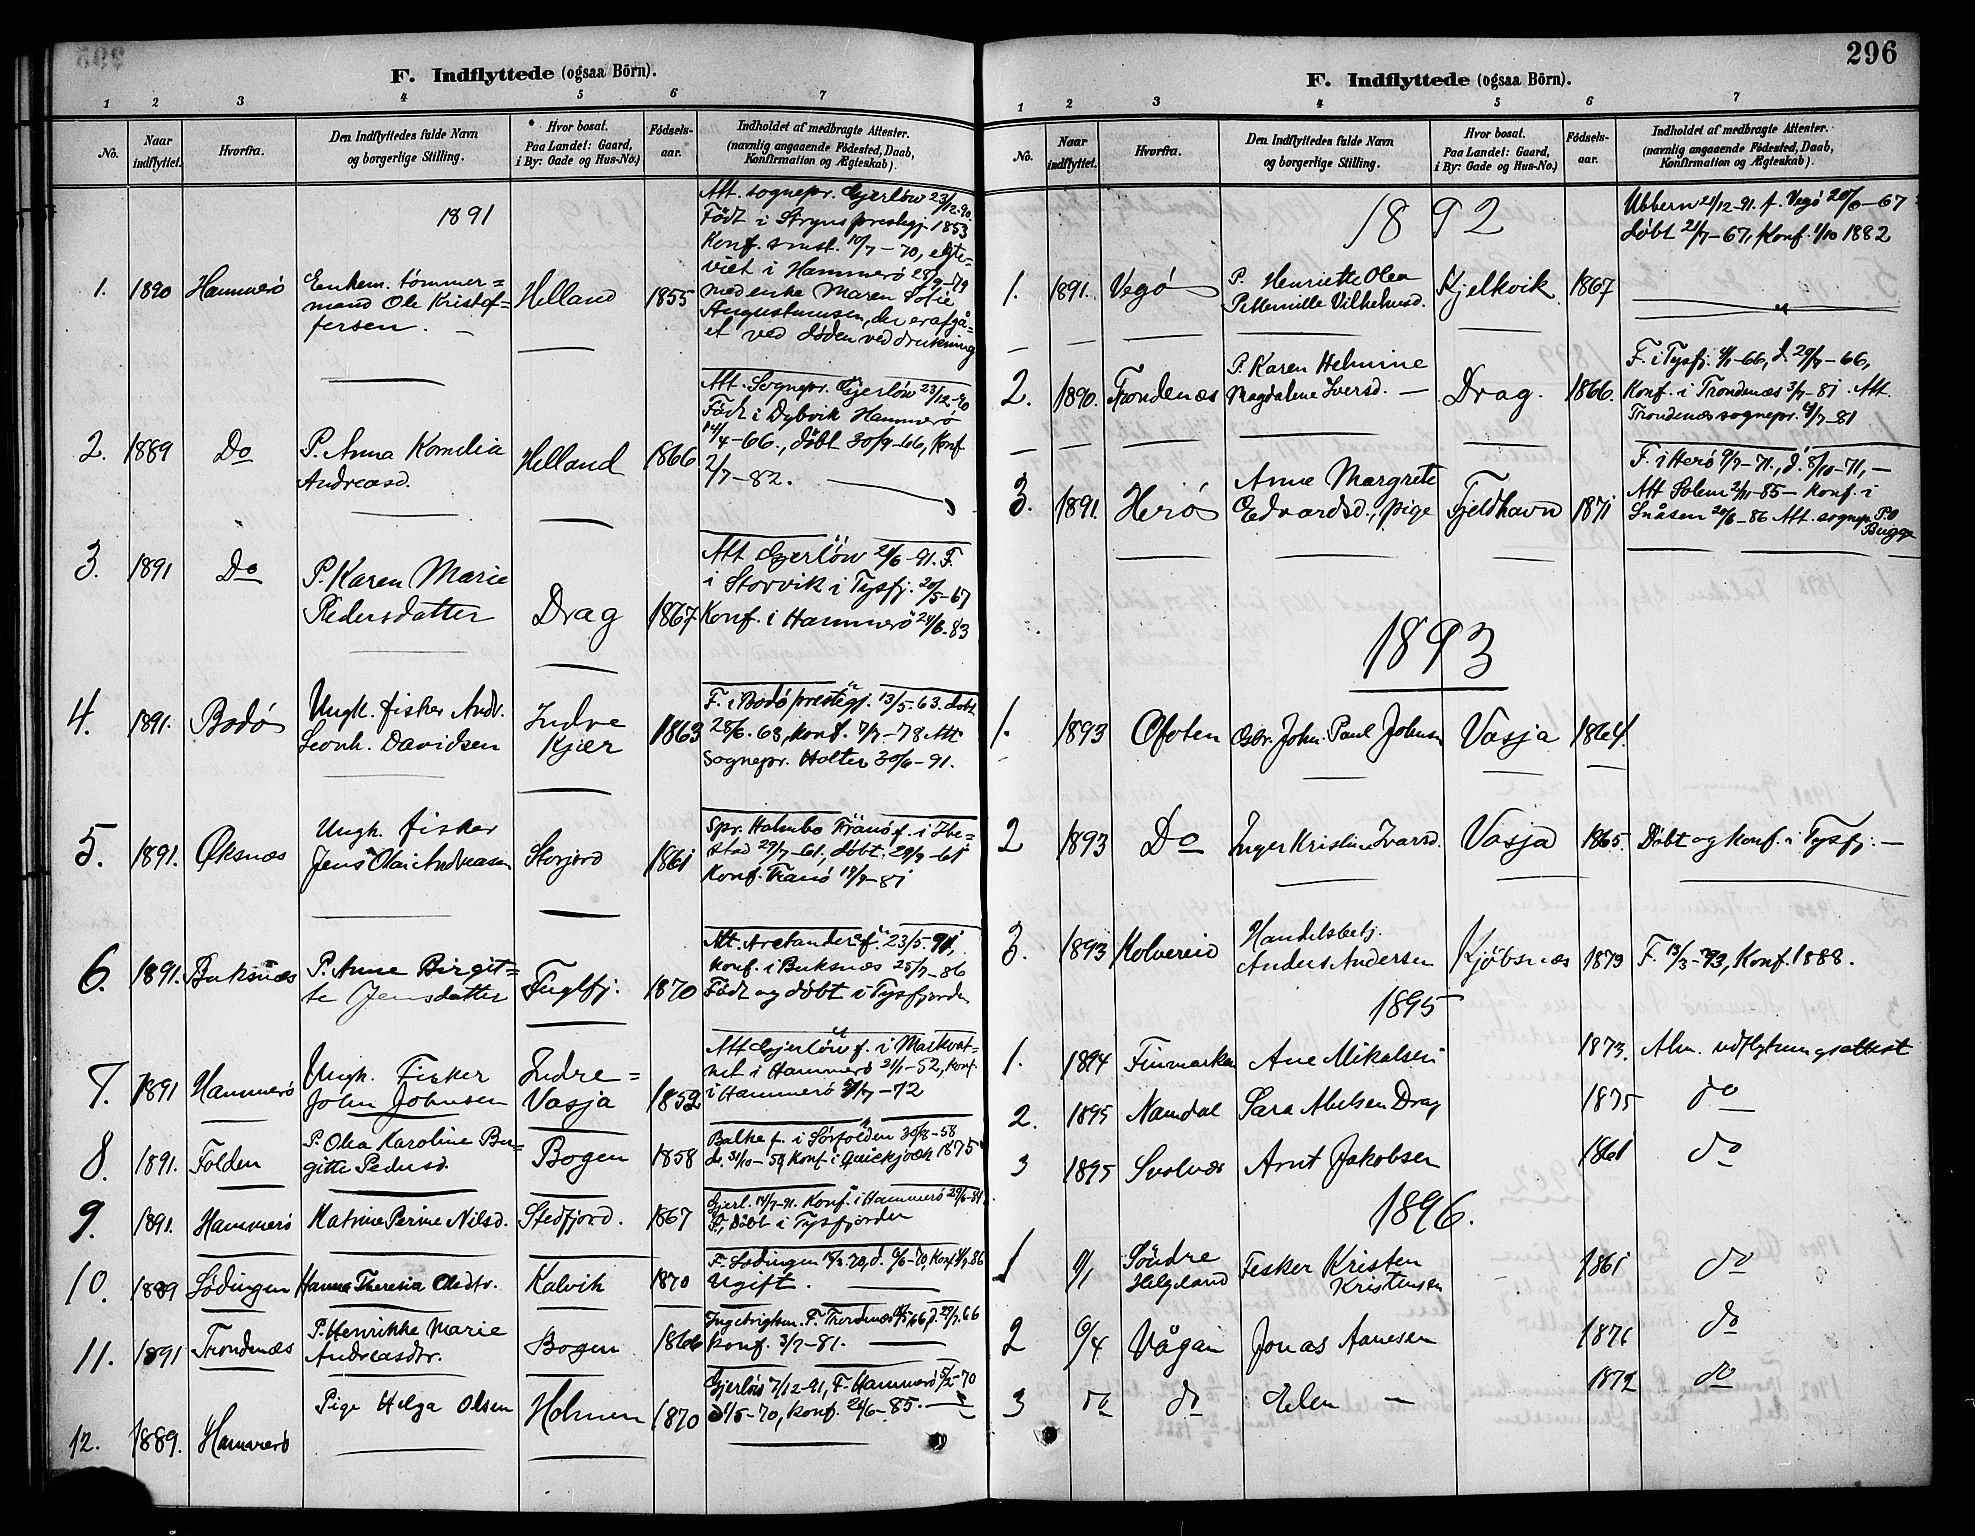 F. Indflyttede (ogsaa Börn).
1 2 3 4 5 6 7
No.
Naar
indflyttet.
Hvorfra.
Den Indflyttedes fulde Navn
og borgerlige Stilling.
Hvor bosat.
Paa Landet: Gaard,
i By: Gade og Hus-No.)
Födsels-
aar.
Indholdet af medbragte Attester.
(navnlig angaaende Födested, Daab,
Konfirmation og Ægteskab).
1891
1. 1890 Hammerö
Enkem. tömmer=
mand Ole Kristof-
fersen.
Helland 1855
Att. sognepr. Gjerlöw 23/12-90.
Födt i Stryns prestegj. 1853
Konf. smst. 10/7-70, egte-
viet i Hammerö 28/9-79
med enke Maren Sofie
Augustinusen, der er afgå-
et ved döden ved drukning
2. 1889 Do
P. Anna Kornelia
Andreasd.
Helland 1866
Att. Sognepr. Gjerlöw 23/12-90
Födt i Dybvik Hammerö
14/4-66., döbt 30/9-66, Konf
2/7-82.
3. 1891 Do
P. Karen Marie
Pedersdatter
Drag 1867
Att Gjerlöw 24/6-91. F.
i Storvik i Tysfj. 20/5-67
Konf. i Hammerö 24/6-83
4. 1891. Bodö
Ungk. fisker Andr.
Leonh. Davidsen
Indre
Kjær
1863
F. i Bodö prestegj. 13/5-63. döbt
28/6. 63, konf. 7/7-78. Att
Sognepr. Holter 30/6-91.
5. 1891. Öksnæs
Ungk. fisker
Jens Olai Andreasen
Storjord 1861
Spr. Holmbo Tranö f. i Ibe=
stad 27/7-61., döbt. 29/9-61
Konf. Tranö 19/9-81
6. 1891. Buksnæs
P. Anne Birgit=
te Jensdatter
Fuglfj. 1870
Att. Arctander f. 23/5. 91,
konf. i Buksnæs 25/7-86
Födt og döbt i Tysfjorden
7. 1891 Hammerö
Ungk. Fisker
John Johnsen
Indre=
Vasja
1852
Att Gjerlöw f. i Markvat-
net i Hammerö 21/1-52, konf.
i Hammerö 7/7-72
8. 1891. Folden
P. Olea Karoline Bir-
gitte Pedersd.
Bogen 1858
Balke f. i Sörfolden 30/8-58
d. 31/10-58, Konf i Quickjock 1875
9. 1891. Hammerö
Katrine Perine Nilsd.
Stedfjord. 1867
Gjerl. 14/7-91. Konf. i Hammerö 29/6-84.
F., Döbt i Tysfjorden
10. 1889 Lödingen
Hanna Theresia Olsdtr.
Kalvik 1870
Ugift.
11. 1891 Trondenæs
P. Henrikke Marie
Andreasdtr.
Bogen 1866
konf. 3/7-81.
12. 1889. Hammerö
Pige Helga Olsen
Holmen 1870
Gjerlöw 7/12-91, F. Hammerö 5/2-70
d 1/5-70, konf. 24/6-85.
296
F. Indflyttede (ogsaa Börn).
1 2 3 4 5 6 7
No.
Naar
indflyttet.
Hvorfra.
Den Indflyttedes fulde Navn
og borgerlige Stilling.
Hvor bosat.
Paa Landet: Gaard,
i By: Gade og Hus-No.)
Födsels-
aar.
Indholdet af medbragte Attester.
(navnlig angaaende Födested, Daab,
Konfirmation og Ægteskab).
1892
1. 1891. Vegö
P. Henriette Olea
Petternille Vilhelmsd.
Kjelkvik 1867
döbt 21/7-67, Konf. 1/10 1882
2. 1890. Trondenæs
P. Karen Helmine
Magdalene Iversd.
Drag. 1866.
F. i Tysfj. 6/1-66, d. 29/7-66,
Konf. i Trondenæs 3/7-81. Att.
Trondenæs sognepr. 9/7-81
3. 1891. Herö
Anne Margrete
Edvardsd., pige
Fjeldhavn 1871
F. i Herö 9/7-71., d. 8/10-71,
Att Solem 2/11-85 - Konf. i
Snåsen 20/6-86 Att. sognepr. P.O
Bugge
1893
1. 1893 Ofoten
Gbr. John Paul Johnsn
Vasja 1864.
2 1893 Do
Inger Kristine Ivarsd.
Vasja 1865. Döbt og Konf. i Tysfj.
3. 1893 Kolvereid
Handelsbetj.
Anders Andersen
Kjöbsnæs 1873 F. 13/3-73, Konf. 1888.
1895
1. 1894 Finmarken Ane Mikalsen 1873. Alm. udflytningsattest
2. 1895 Namdal Sara Abelsen Drag 1875 do
3 1895 Svolvær Arnt Jakobsen 1861 do
1896.
1 9/1
Söndre
Helgeland
Fisker Kristen
Kristensen
1861 do
2 9/4 Vågan Jonas Aanesen 1871 do
3 do do Elen — 1872 do